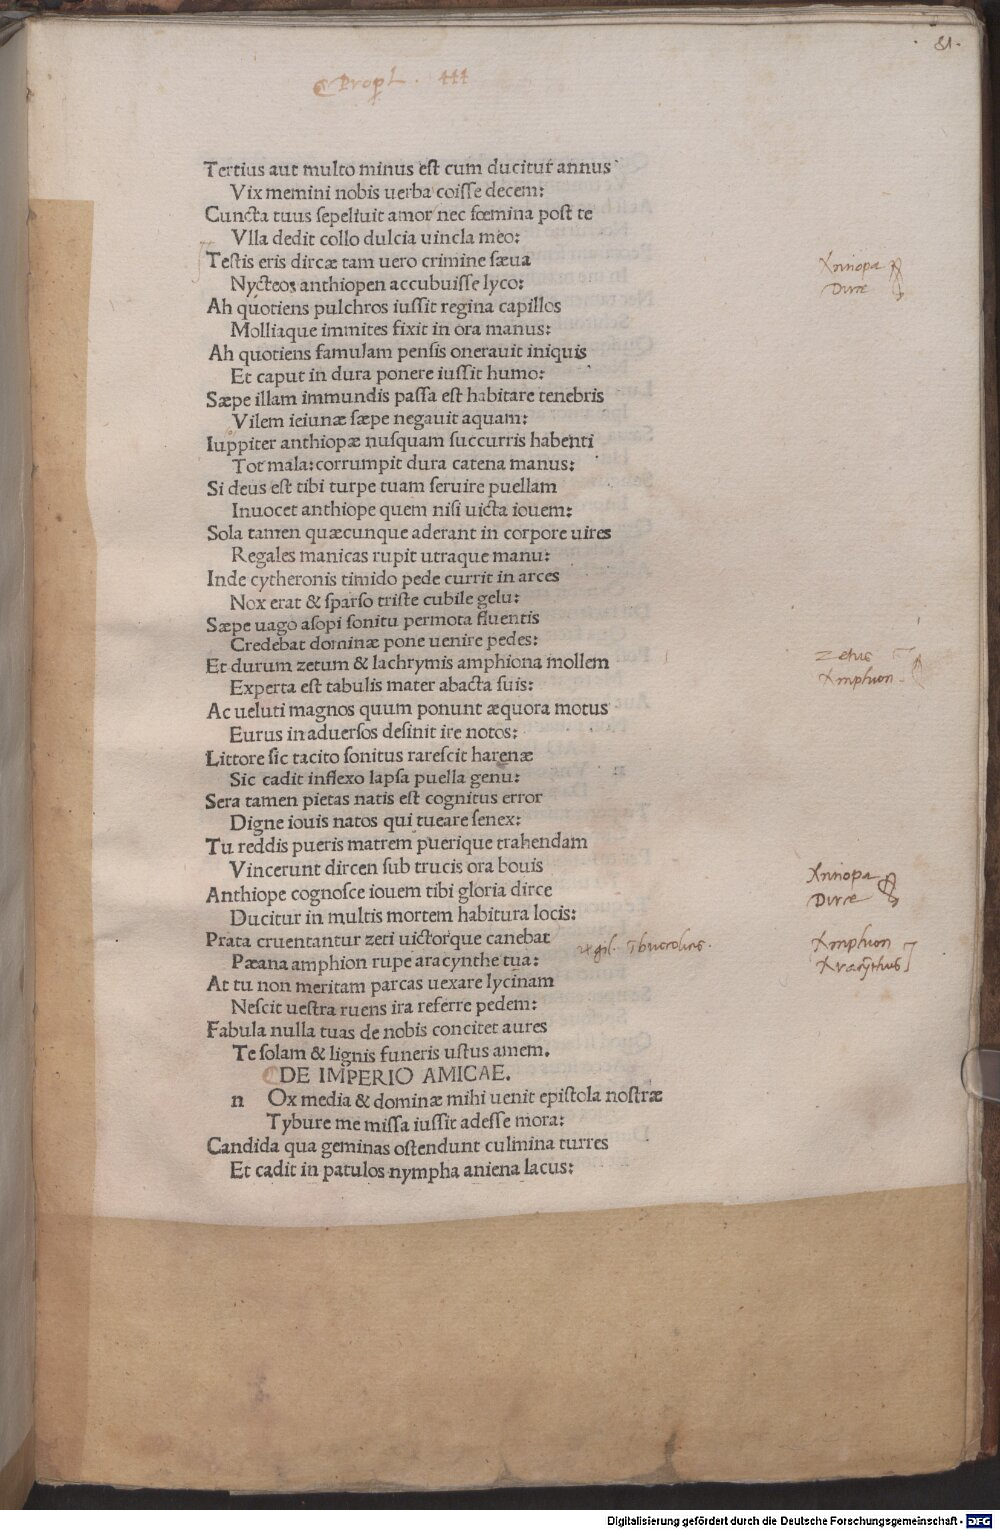 81.
Propl. III
Tertius aut multo minus est cum ducitur annus
Vix memini nobis uerba coiſſe decem:
Cuncta tuus ſepeliuit amor nec fœmina poſt te
Vlla dedit collo dulcia uincla meo:
Teſtis eris dircæ tam uero crimine ſæua
Nycteos anthiopen accubuiſſe lyco:
Ah quotiens pulchros iuſſit regina capillos
Molliaque immites fixit in ora manus:
Ah quotiens famulam penſis onerauit iniquis
Et caput in dura ponere iuſſit humo:
Sæpe illam immundis paſſa eſt habitare tenebris
Vilem ieiunæ ſæpe negauit aquam:
Iuppiter anthiopæ nuſquam ſuccurris habenti
Tot mala:corrumpit dura catena manus:
Si deus eſt tibi turpe tuam ſeruire puellam
Inuocet anthiope quem niſi uicta iouem:
Sola tamen quæcunque aderant in corpore uires
Regales manicas rupit utraque manu:
Inde cytheronis timido pede currit in arces
Nox erat & ſparſo triſte cubile gelu:
Sæpe uago aſopi ſonitu permota fluentis
Credebat dominæ pone uenire pedes:
Et durum zetum & lachrymis amphiona mollem
Experta eſt tabulis mater abacta ſuis:
Ac ueluti magnos quum ponunt æquora motus
Eurus in aduerſos deſinit ire notos:
Littore ſic tacito ſonitus rareſcit harenæ
Sic cadit inflexo lapſa puella genu:
Sera tamen pietas natis eſt cognitus error
Digne iouis natos qui tueare ſenex:
Tu reddis pueris matrem puerique trahendam
Vincerunt dircen ſub trucis ora bouis
Anthiope cognoſce iouem tibi gloria dirce
Ducitur in multis mortem habitura locis:
Prata cruentantur zeti uictorque canebat
Pæana amphion rupe aracynthe tua:
At tu non meritam parcas uexare lycinam
Neſcit ueſtra ruens ira referre pedem:
Fabula nulla tuas de nobis concitet aures
Te ſolam & lignis funeris uſtus amem.
DE IMPERIO AMICAE.
n Ox media & dominæ mihi uenit epiſtola noſtræ
Tybure me miſſa iuſſit adeſſe mora:
Candida qua geminas oſtendunt culmina turres
Et cadit in patulos nympha aniena lacus:
Antiopa
Dirce
Zetus
Amphion
Antiopa
Dirce
Amphion
Aracÿthus
Digitalisierung gefördert durch die Deutsche Forschungsgemeinschaft - DFG